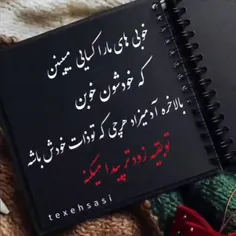 خوبی های ما را کسایی میبینن
که خودشون خوبن
بالاخره آدمیزاد هرچی که تو ذات خودش باشه
تو بقیه زودتر پیدا میکنه
texehsasi